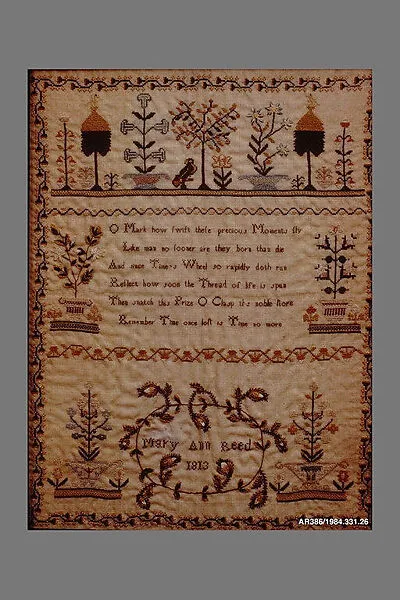 O Mark how ſwift theſe precious Moments fly
Like man no ſooner are they born than die
And since Time's Wheel so rapidly doth run
Reflect how soon the Thread of life is spun
Then snatch this Prize O Clasp its noble ſtore
Remember Time once loſt is Time no more
Mary Ann Reed
1813
AR386/1984.331.26